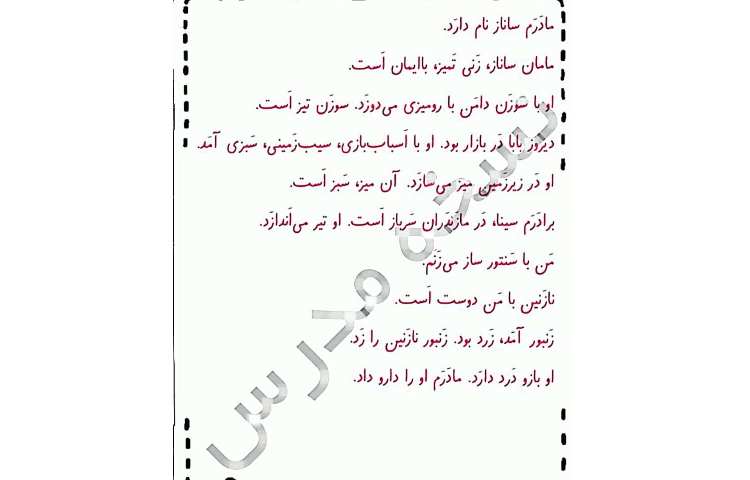 مادَرَم ساناز نام دارَد.
مامان ساناز، زَنی تَمیز، باایمان اَست.
او با سوزَن دامَن با رومیزی می‌دوزَد. سوزَن تیز اَست.
دیروز بابا دَر بازار بود. او با اَسباب‌بازی، سیب‌زَمینی، سَبزی آمَد.
او دَر زیرزَمین میز می‌سازَد. آن میز، سَبز اَست.
برادَرَم سینا، دَر مازَندَران سَرباز اَست. او تیر می‌اَندازَد.
مَن با سَنتور ساز می‌زَنَم.
نازَنین با مَن دوست اَست.
زَنبور آمَد، زَرد بود. زَنبور نازَنین را زَد.
او بازو دَرد دارَد. مادَرَم او را دارو داد.
نسخه مدرس